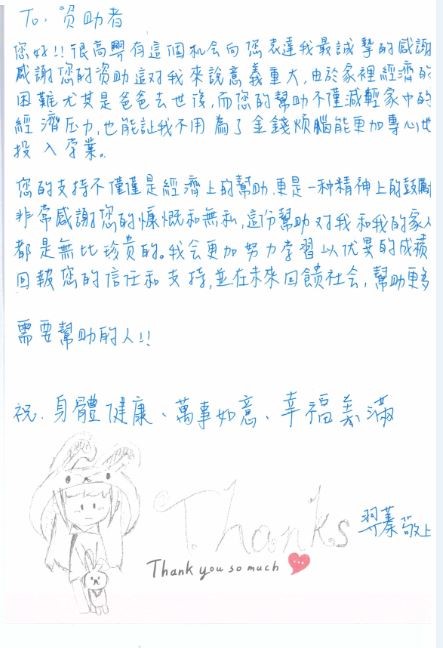 To. 資助者
您好!! 很高興有這個机会向您表達我最誠摯的感謝
感謝您的資助這对我來說意義重大,由於家裡經濟的
困難尤其是爸爸去世後,而您的幫助不僅減輕家中的
經濟压力,也能讓我不用為了金錢烦腦能更加專心地
投入学業。
您的支持不僅僅是經濟上的幫助,更是一种精神上的鼓勵
非常感謝您的慷慨和無私,這份幫助对我和我的家人
都是無比珍貴的。我会更加努力学習以优異的成績
回報您的信任和支持,並在未來回饋社会,幫助更多
需要幫助的人!!
祝.身體健康、萬事如意、幸福美滿
Thanks
Thank you so much
敬上